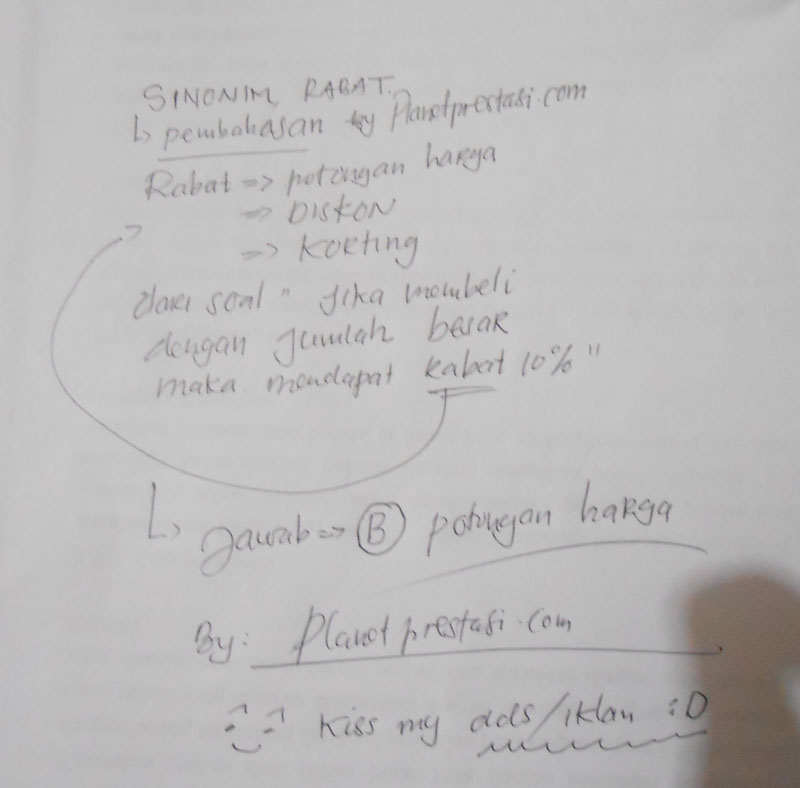 SINONIM RABAT.
↳ pembahasan by Planetprestasi.com
Rabat => potongan harga
=> DISKON
=> Korting
dari soal " Jika membeli
dengan jumlah besar
maka mendapat rabat 10% "
↳ Jawab => B potongan harga
By: Planet prestasi.com
kiss my ads/iklan :D